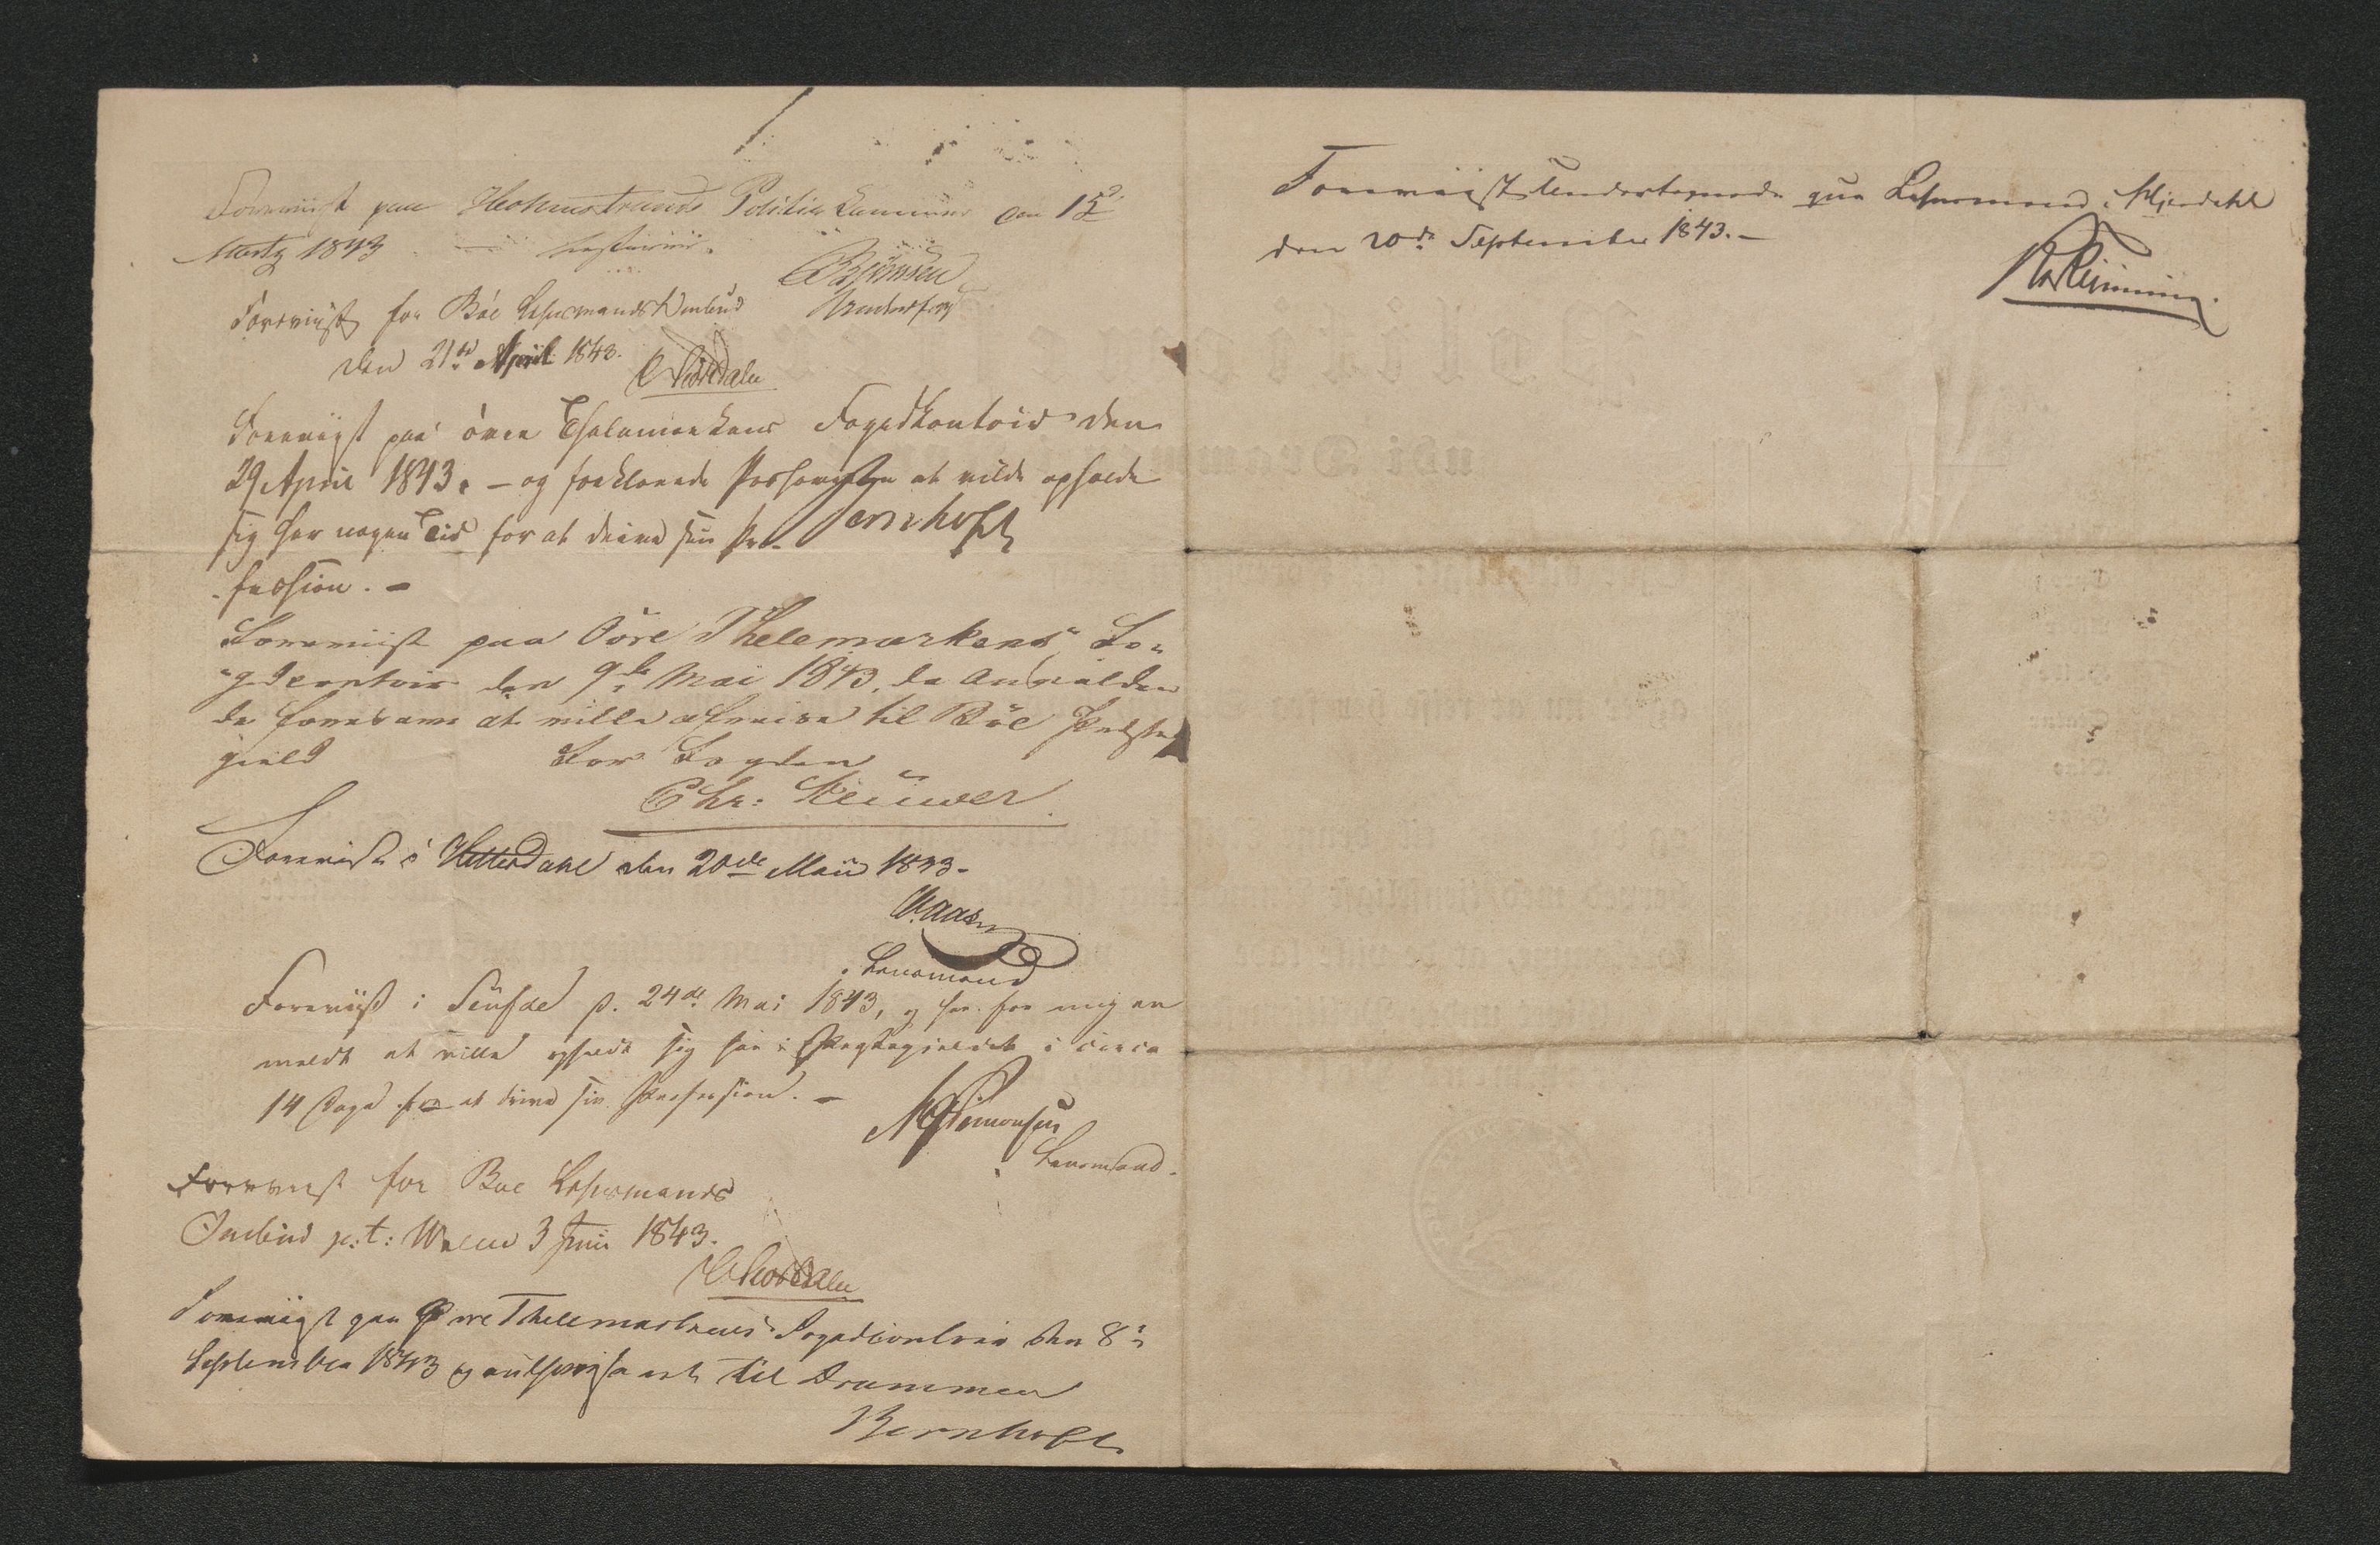 Foreviist paa Holmestrands Politie Kammer den 15
Martz 1843
Björnsen
Foreviist for Böe Lehnsmands Ombud
den 21de April 1843.
Foreviist paa övre Thelemarkens Fogedkontoir den
29 April 1843. – og forklarede Passoviseren at vilde opholde
sig her nogen Tid for at drive sin Pro-
fession. –
Bernhoft
Foreviist paa Övre Thelemarkens Fo-
gedcontoir den 9de Mai 1843, da
at ville afreise til Böe Præste
gield
For Fogden
Chr:
Foreviist i Hitterdahl den 20de Maii 1843.
Lensmand
Foreviist i Seufde d. 24de Mai 1843, og har for mig an
meldt at ville opholde sig her i Præstegieldet i circa
14 Dage for at drive sin Profession. –
Simonsen
Lensmand.
Foreviist for Böe Lehnsmands
Ombud p:t: 3 Juni 1843.
Foreviist paa Övre Thelemarkens Fogedcontoir den 8de
September 1843 og til Drammen
Bernhoft
Foreviist Undertegnede qua Lehnsmand i
den 20de September 1843. –